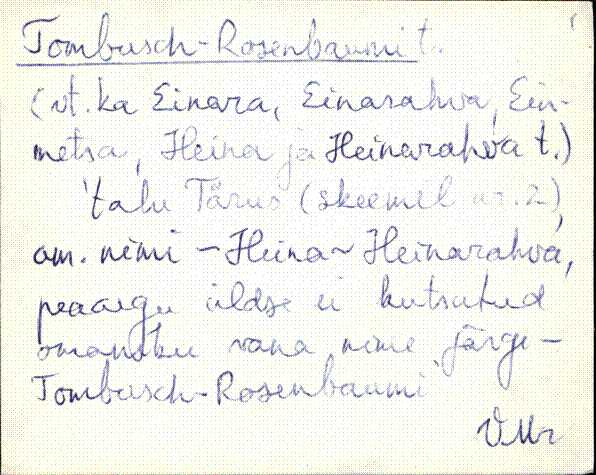 Tombusch-Rosenbaumi t.
(vt. ka Einara, Einarahva, Ein-
metsa, Heina ja Heinarahva t.)
'talu Tärus (skeemil nr. 2),
am. nimi – Heina ~ Heinarahva,
peaaegu üldse ei kutsutud
omaniku vana nime järgi –
Tombusch-Rosenbaumi
VMr